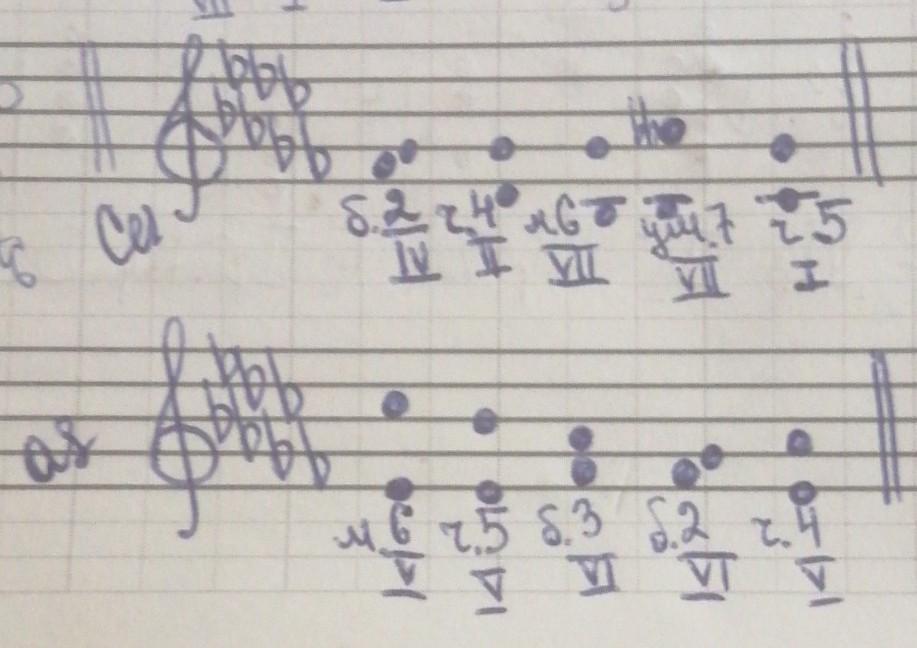 VII I
Ces б.2 ч.4 м6 ум.7 ч5
IV II VII VII I
as м.6 ч.5 б.3 б.2 ч.4
V V VI VI V